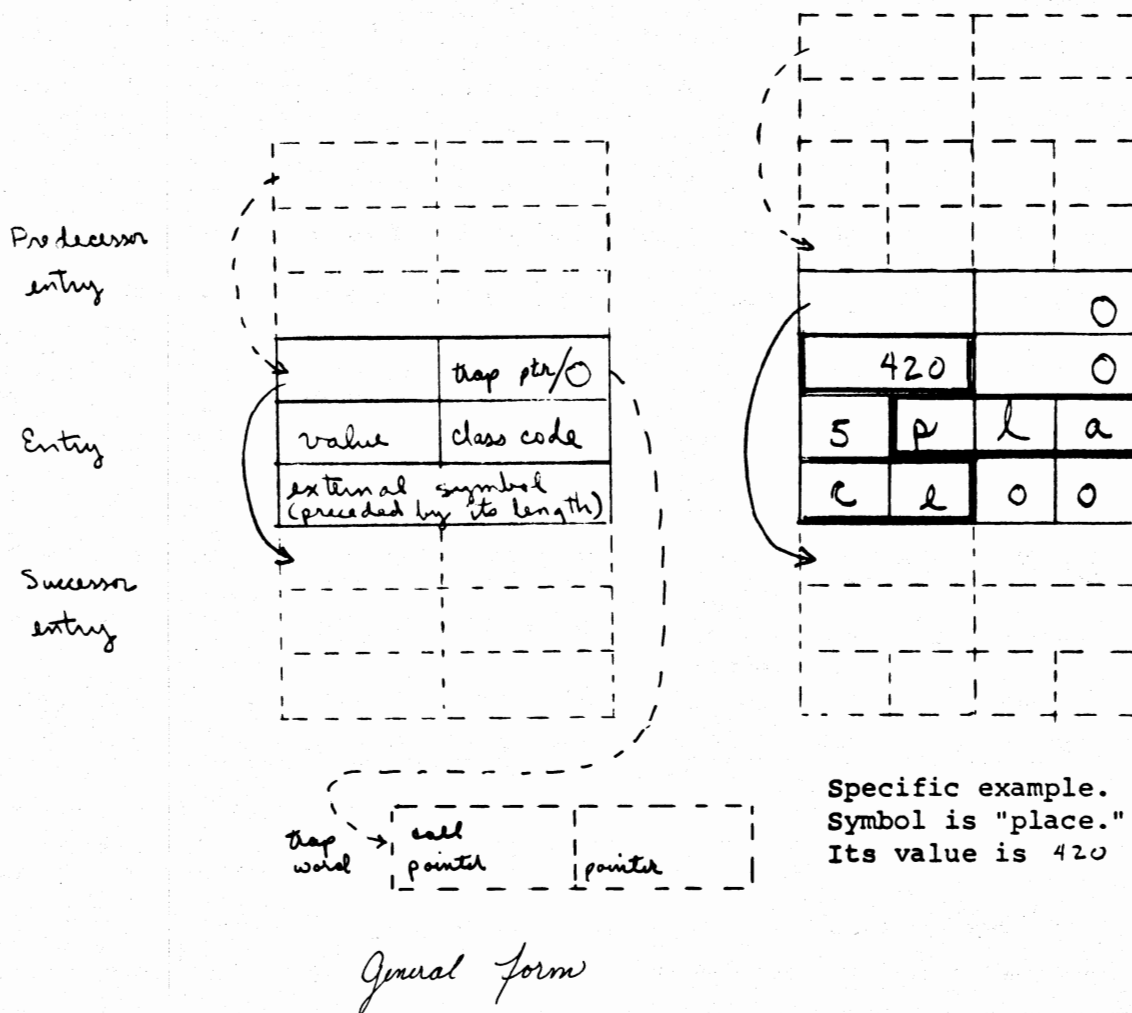 Predecessor
entry
Entry
Successor
entry
trap ptr/0
value
class code
external symbol
(preceded by its length)
trap
word
call
pointer
pointer
General Form
0
420
0
5
p
l
a
c
e
0
0
Specific example.
Symbol is "place."
Its value is 420